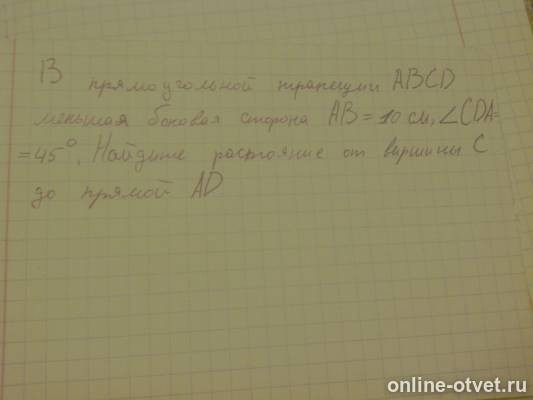 В прямоугольной трапеции ABCD
меньшая боковая сторона AB = 10 см, ∠CDA=
= 45°. Найдите растояние от вершины C
до прямой AD
online-otvet.ru